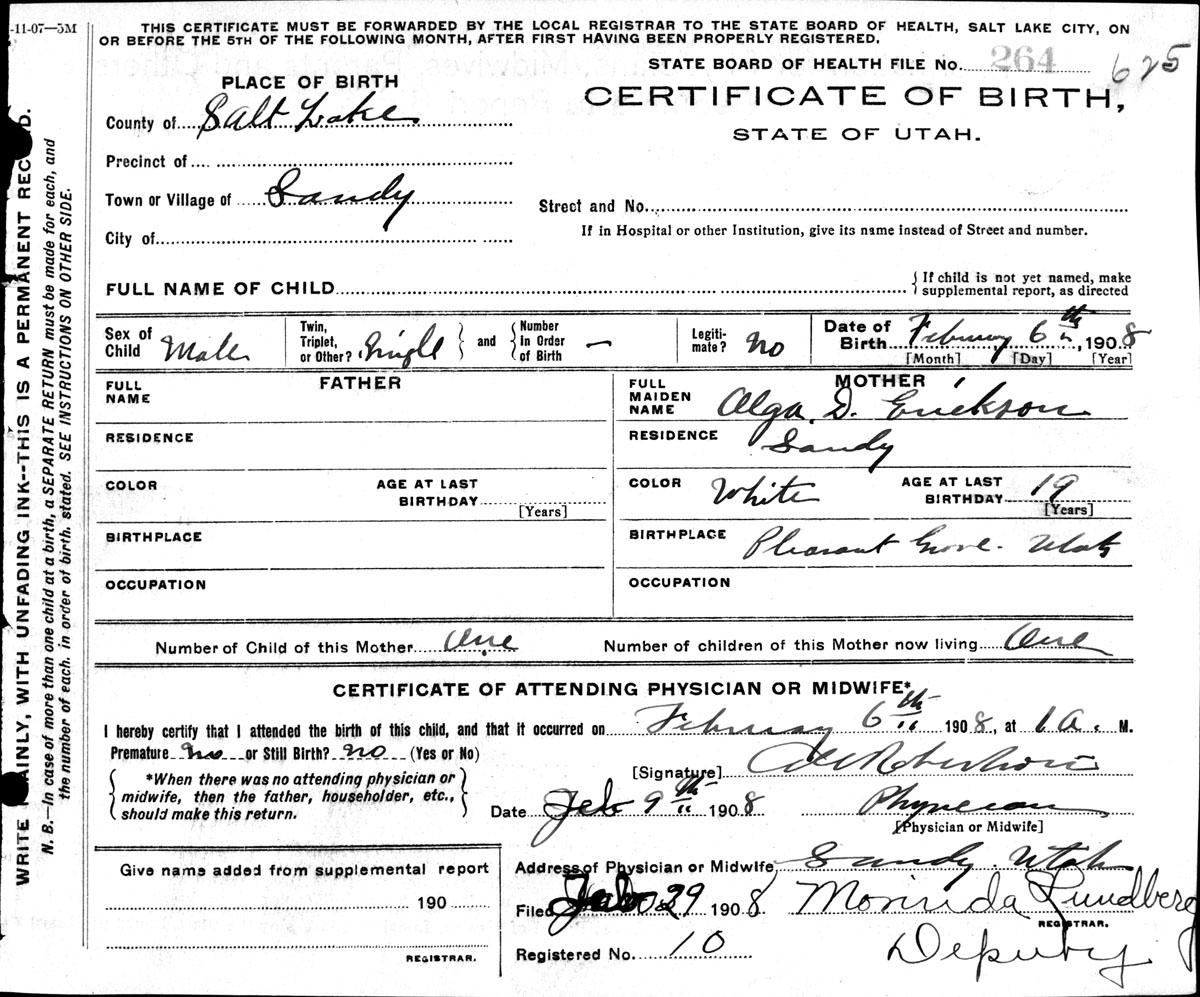 -11-07—5M
THIS CERTIFICATE MUST BE FORWARDED BY THE LOCAL REGISTRAR TO THE STATE BOARD OF HEALTH, SALT LAKE CITY, ON
OR BEFORE THE 5TH OF THE FOLLOWING MONTH, AFTER FIRST HAVING BEEN PROPERLY REGISTERED.
STATE BOARD OF HEALTH FILE No. 264 625
PLACE OF BIRTH
CERTIFICATE OF BIRTH,
STATE OF UTAH.
County of Salt Lake
Precinct of
Town or Village of Sandy
Street and No.
City of
If in Hospital or other Institution, give its name instead of Street and number.
FULL NAME OF CHILD
{ If child is not yet named, make
supplemental report, as directed
Sex of Child Male
Twin, Triplet, or Other? Single } and { Number In Order of Birth —
Legiti-mate? No
Date of Birth February 6th, 1908
[Month] [Day] [Year]
FATHER
FULL NAME
RESIDENCE
COLOR
AGE AT LAST BIRTHDAY
[Years]
BIRTHPLACE
OCCUPATION
MOTHER
FULL MAIDEN NAME Alga D. Erickson
RESIDENCE Sandy
COLOR White
AGE AT LAST BIRTHDAY 19
[Years]
BIRTHPLACE Pleasant Grove. Utah
OCCUPATION
Number of Child of this Mother One
Number of children of this Mother now living One
CERTIFICATE OF ATTENDING PHYSICIAN OR MIDWIFE*
I hereby certify that I attended the birth of this child, and that it occurred on February 6th 1908, at 1 a. M.
Premature No or Still Birth? No (Yes or No)
{ *When there was no attending physician or
midwife, then the father, householder, etc.,
should make this return. }
[Signature] Robertson
Date Feb 9th 1908
Physician
[Physician or Midwife]
Address of Physician or Midwife, Sandy. Utah
Filed Feb 29 1908 Morinda Lundberg
REGISTRAR.
Deputy
Registered No. 10
Give name added from supplemental report
190
REGISTRAR.
WRITE PLAINLY, WITH UNFADING INK--THIS IS A PERMANENT RECORD.
N. B.—In case of more than one child at a birth, a SEPARATE RETURN must be made for each, and
the number of each, in order of birth, stated. SEE INSTRUCTIONS ON OTHER SIDE.